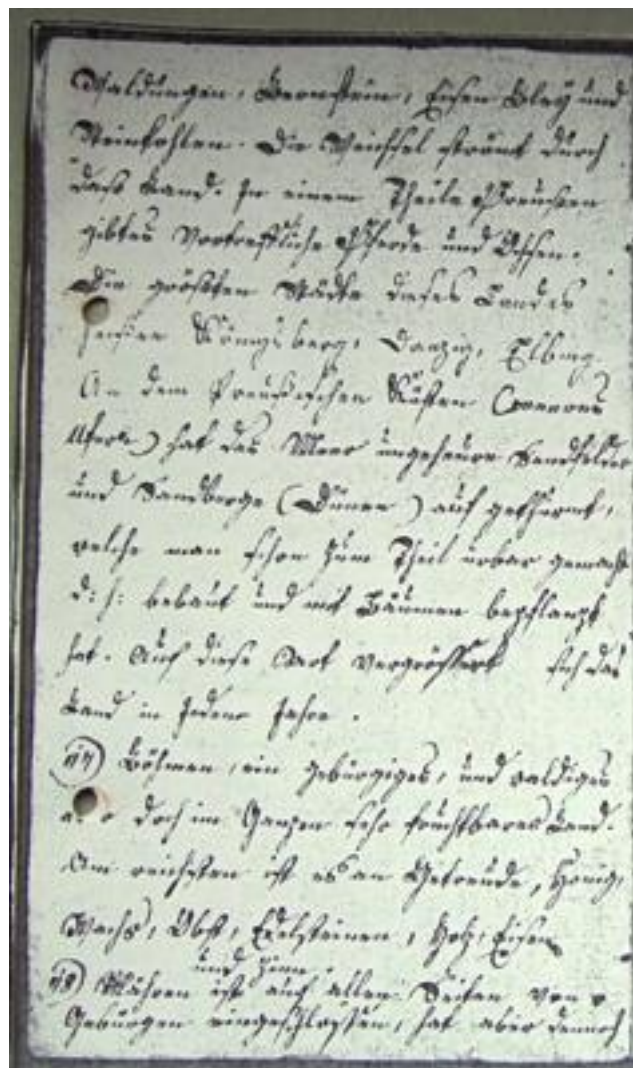 Waldungen, Bernstein, Eisen Bley und
Steinkohlen. Die Weichsel strömt durch
daß Land. In einem Theile Preußen
gibt es vortreffliche Pferde und Ochsen.
Die größten Städte dieses Landes
heißen Königsberg, Danzig, Elbing.
An dem Preußischen Küsten
Ufern) hat das Meer ungeheure Sandfelder
und Sandberge (Dünen) auf gethürmt,
welche man schon zum Theil urbar gemacht
d: h: bebaut und mit Bäumen bepflanzt
hat. Auf diese Art vergrössert sich das
Land in jedem Jahre.
Böhmen, ein gebürgiges, und waldiges
doch im Ganzen sehr fruchtbares Land.
Am reichsten ist es an Getreude, Honig,
Wachs, Obst, Edelsteinen, Holz, Eisen
und Zinn.
Mähren ist auf allen Seiten von
Gebürgen eingeschlossen, hat aber dennoch